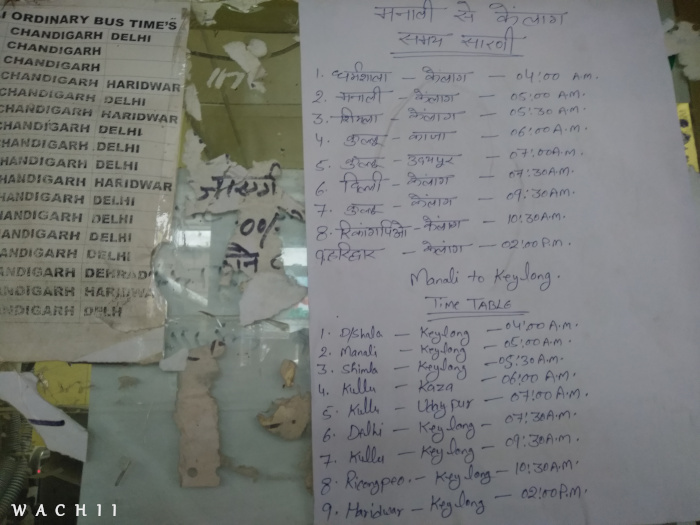 I ORDINARY BUS TIME'S
CHANDIGARH DELHI
CHANDIGARH
CHANDIGARH
CHANDIGARH HARIDWAR
CHANDIGARH DELHI
CHANDIGARH HARIDWAR
CHANDIGARH DELHI
CHANDIGARH DELHI
CHANDIGARH DELHI
CHANDIGARH HARIDWAR
CHANDIGARH DELHI
HANDIGARH DELHI
HANDIGARH DELHI
ANDIGARH DEHRAD
ANDIGARH HARIDWA
NDIGARH DELH
मनाली से केलांग
समय सारणी
1. धर्मशाला – केलांग – 04:00 A.M.
2. मनाली – केलांग – 05:00 A.M.
3. शिमला – केलांग – 05:30 A.M.
4. कुल्लू – काजा – 06:00 A.M.
5. कुल्लू – उदयपुर – 07:00 A.M.
6. दिल्ली – केलांग – 07:30 A.M.
7. कुल्लू – केलांग – 09:30 A.M.
8. रिकांगपिओ – केलांग – 10:30 A.M.
9. हरिद्वार – केलांग – 02:00 P.M.
Manali to Keylong.
TIME TABLE
1. D/Shala – Keylong – 04:00 A.M.
2. Manali – Keylong – 05:00 A.M.
3. Shimla – Keylong – 05:30 A.M.
4. Kullu – Kaza – 06:00 A.M.
5. Kullu – Udaypur – 07:00 A.M.
6. Delhi – Keylong – 07:30 A.M.
7. Kullu – Keylong – 09:30 A.M.
8. Ricongpeo. – Keylong – 10:30 A.M.
9. Haridwar – Keylong – 02:00 P.M.
WACHII